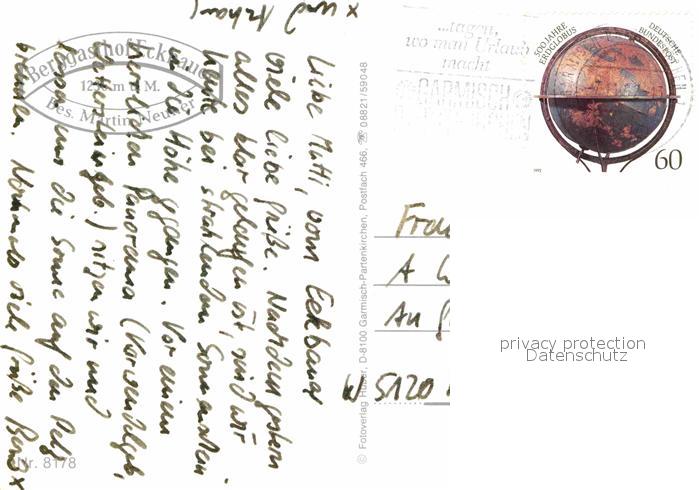 Berggasthof Eckbauer
1236 m ü. M.
Bes. Martin Neuner
Liebe Mutti, vom Eckbauer
viele liebe Grüße. Nachdem gestern
alles klar gelaufen ist, sind wir
heute bei strahlendem Sonnenschein
in die Höhe gegangen. Vor einem
herrlichen Panorama (Karwendelgeb.,
Wettersteingeb.) sitzen wir und
lassen uns die Sonne auf den Pelz
brennen. Nochmals viele Grüße
x und
x
Nr. 8178
© Fotoverlag Huber, D-8100 Garmisch-Partenkirchen, Postfach 466, ☏ 08821/59048
...tagen,
wo man Urlaub
macht
GARMISCH
500 JAHRE
ERDGLOBUS
DEUTSCHE
BUNDESPOST
60
1992
Frau
A
An
W 5120
privacy protection
Datenschutz